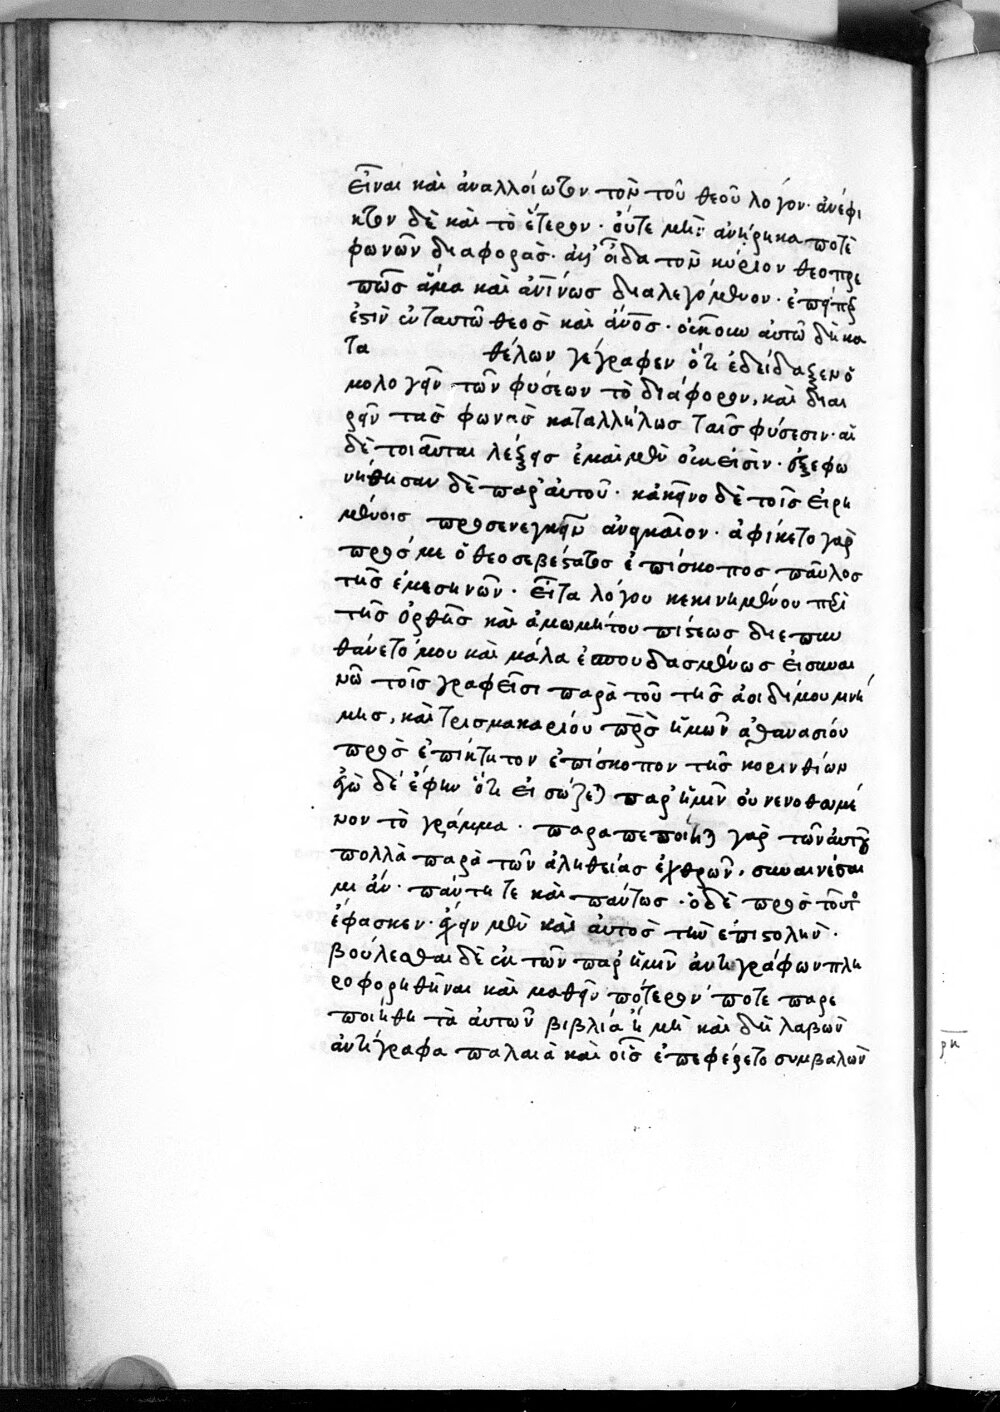 εἶναι καὶ ἀναλλοίωτον τὸν τοῦ θεοῦ λόγον· ἀνέφι
κτον δὲ καὶ τὸ ἕτερον· οὔτε μὴν ἀνήρηκα ποτὲ
φωνῶν διαφορὰς· οἶδα τὸν κύριον θεοπρε
πῶς ἅμα καὶ ἀνίνως διαλεγόμενον· ἐπείπερ
ἐστὶν ἐν ταυτῶ θεὸς καὶ ἄνος· οὐκοῦν αὐτὼ δὴ κα
τα θέλων γέγραφεν ὅτι ἐδείδαξεν ὁ
μολογεῖν τῶν φύσεων τὸ διάφορον, καὶ διαι
ρεῖν τὰς φωνὰς καταλλήλως ταῖς φύσεσιν· αἱ
δὲ τοιαῦται λέξεις ἐμαὶ μὲν οὐκ εἰσὶν· ἐξεφω
νήθησαν δὲ παρ' αὐτοῦ· κἀκεῖνο δὲ τοῖς εἰρη
μένοις προσενεγκεῖν ἀναγκαῖον· ἀφίκετο γὰρ
πρός με ὁ θεοσεβέστατος ἐπίσκοπος παῦλος
τῆς ἐμεσηνῶν· εἶτα λόγου κεκινημένου περὶ
τῆς ὀρθῆς καὶ ἀμωμήτου πίστεως διεπυν
θάνετό μου καὶ μάλα ἐσπουδασμένως εἰ συναι
νῶ τοῖς γραφεῖσι παρὰ τοῦ τῆς ἀοιδίμου μνή
μης, καὶ τρισμακαρίου πρὸς ἡμῶν ἀθανασίου
πρὸς ἐπίκτητον ἐπίσκοπον τῆς κορινθίων
ἐγὼ δὲ ἔφην ὅτι εἰ σώζεται παρ' ἡμῖν οὐ νενοθευμέ
νον τὸ γράμμα· παραπεποίηται γὰρ τῶν αὐτοῦ
πολλὰ παρὰ τῶν ἀληθείας ἐχθρῶν, συναινέσαι
μι ἂν· πάντη τε καὶ πάντως· ὁ δὲ πρὸς τοῦτο
ἔφασκεν· ἔχειν μὲν καὶ αὐτὸς τὴν ἐπιστολὴν·
βούλεσθαι δὲ ἐκ τῶν παρ' ἡμῖν ἀντιγράφων πλη
ροφορηθῆναι καὶ μαθεῖν πότερόν ποτε παρε
ποιήθη τὰ αὐτῶν βιβλία ἢ μὴ καὶ δὴ λαβὼν
ἀντίγραφα παλαιὰ καὶ οἷς ἐπεφέρετο συμβαλὼν
ρκ